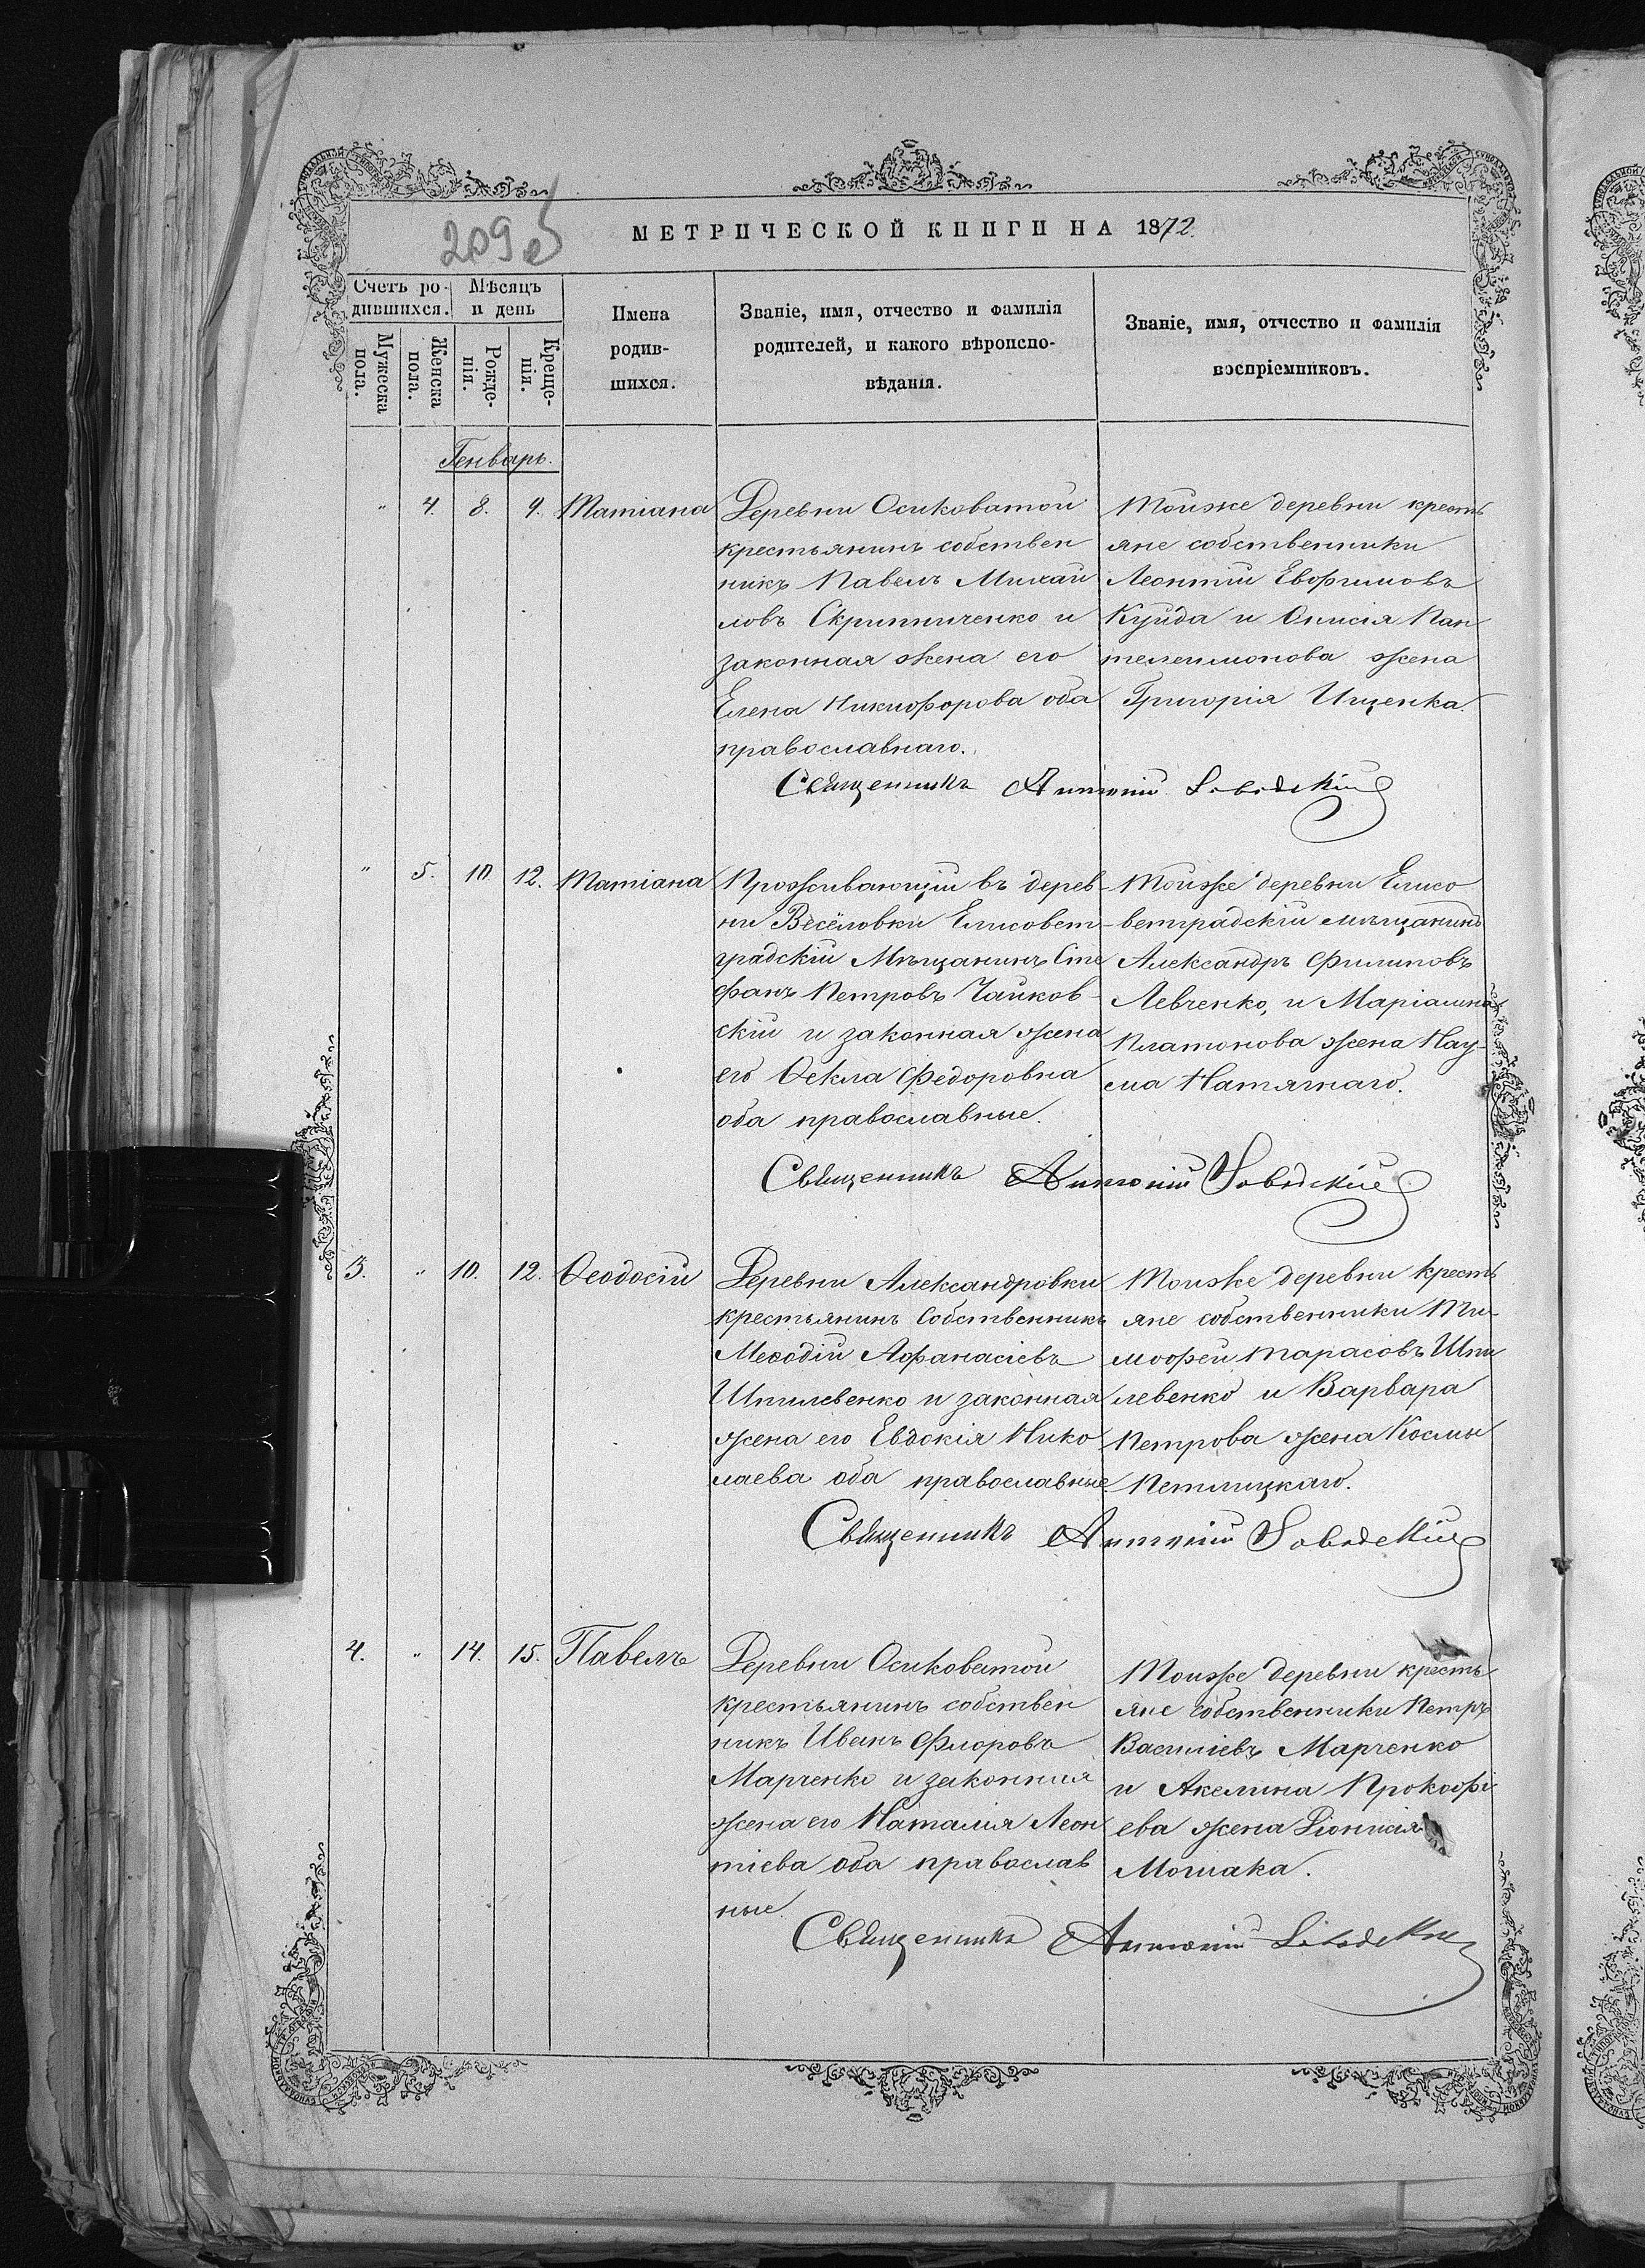 209 об
МЕТРИЧЕСКОЙ КНИГИ НА 1872.
Счетъ ро-дившихся.
Мѣсяцъ и день
Мужеска пола.
Женска пола.
Рожде-нія.
Креще-нія.
Имена родив-шихся.
Званіе, имя, отчество и фамилія
родителей, и какого вѣроиспо-
вѣданія.
Званіе, имя, отчество и фамилія
воспріемниковъ.
Генварь.
" 4. 8. 9. Татіана
Деревни Осиковатой
крестьянинъ собствен
никъ Павелъ Михай
ловъ Скрипниченко и
законная жена его
Елена Никифорова оба
православнаго.
Тойже деревни кресть
яне собственники
Леонтій Евфимовъ
Куйда и Онисія Пан
телеимонова жена
Григорія Ищенка.
Священникъ Антоній
" 5. 10 12. Татіана
Проживающій въ дерев-
ни Весёловки Елисовет-
градскій Мѣщанинъ Сте
фанъ Петровъ Чайков-
скій и законная жена
его Ѳекла Федоровна
оба православные.
Тойже деревни Елисо
ветградскій мѣщанинъ
Александръ Филиповъ
Левченко, и Маріамна
Платонова жена Нау-
ма Натягнаго.
Священникъ Антоній
3. " 10. 12. Ѳеодосій
Деревни Александровки
крестьянинъ Собственникъ
Меѳодій Афанасіевъ
Шпилевенко и законная
жена его Евдокія Нико
лаева оба православные.
Тойже деревни Кресть
яне собственники Ти-
мофей Тарасовъ Шпи
левенко и Варвара
Петрова жена Космы
Петлицкаго.
Священникъ Антоній
4. " 14. 15. Павелъ
Деревни Осиковатой
крестьянинъ собствен
никъ Иванъ Флоровъ
Марченко и законная
жена его Наталія Леон
тіева оба православ
ные.
Тойже деревни кресть
яне собственники Петръ
Василіевъ Марченко
и Акелина Прокофі
ева жена Діонисія
Мошака.
Священникъ Антоній